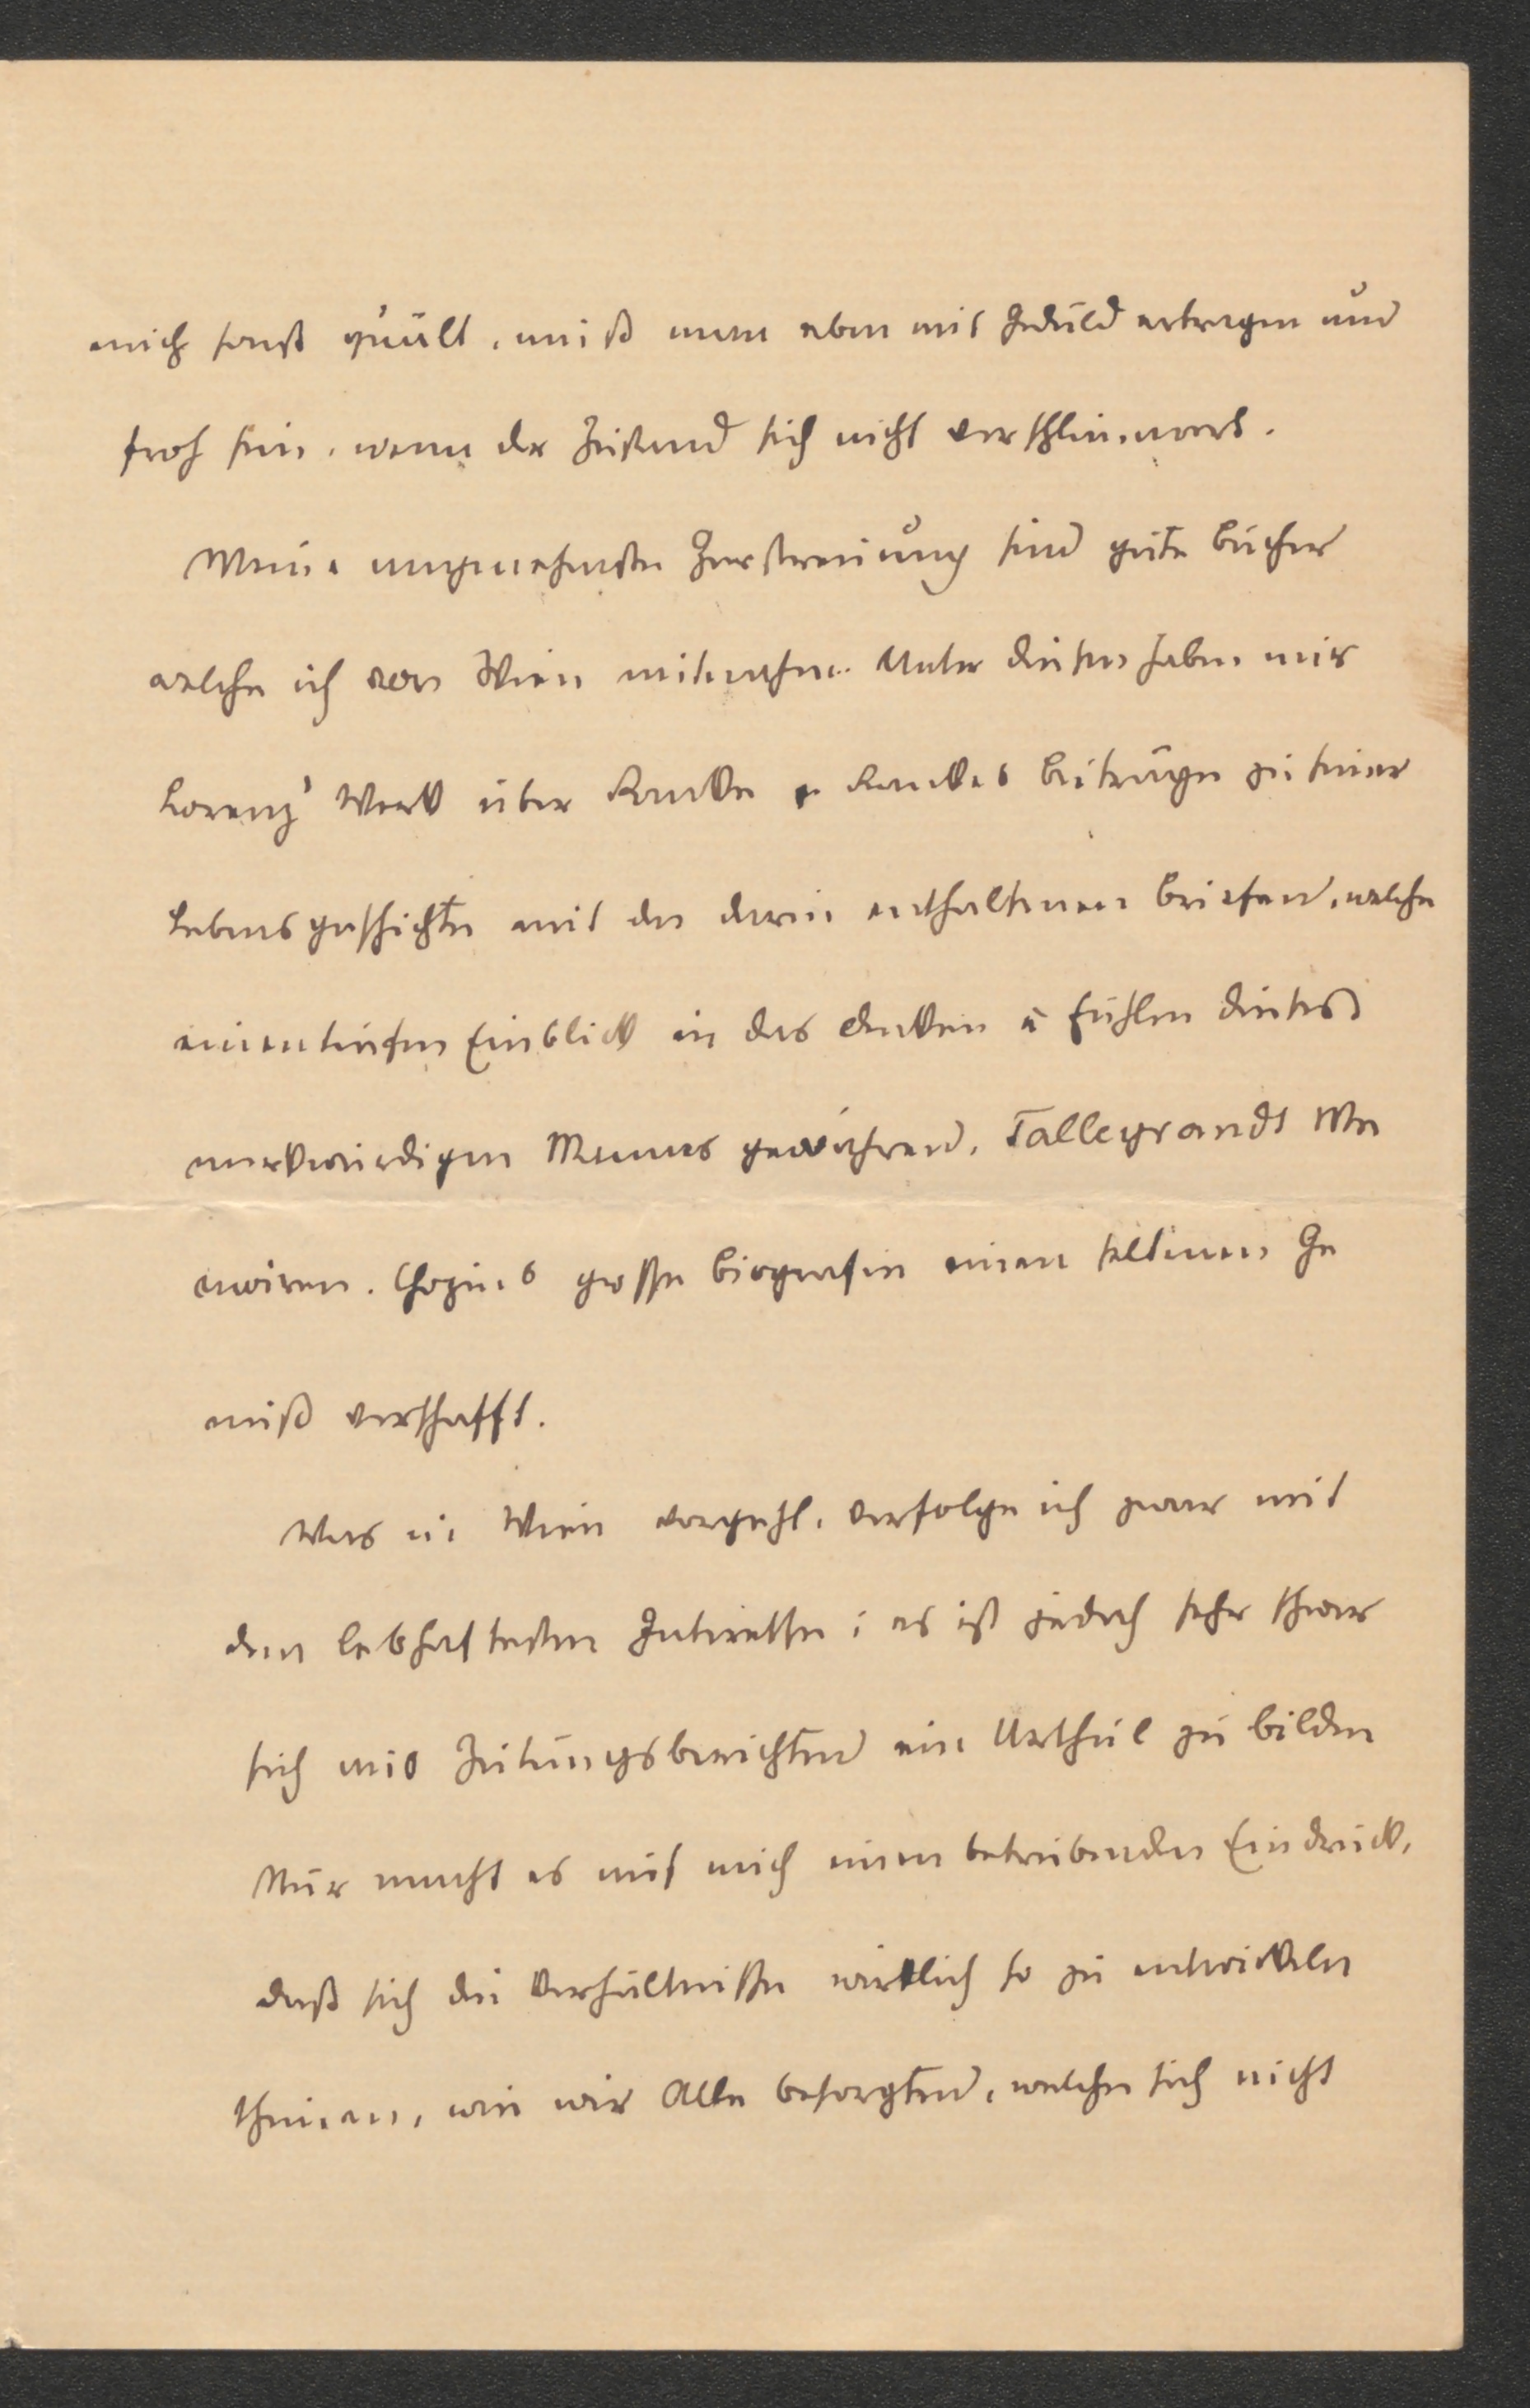 mich sonst quält, muß man eben mit Geduld ertragen und
froh sein, wenn der Zustand sich nicht verschlimmert.
Meine angenehmste Zerstreuung sind gute Bücher
welche ich von Wien mitnahm. Unter diesen haben mir
Lorenz' Werk über Ranke u Rankes Beiträge zu seiner
Lebensgeschichte mit den darin enthaltenen Briefen, welche
einen tiefen Einblick in das Denken u Fühlen dieses
merkwürdigen Mannes gewähren, Talleyrands Me
moiren. Chopins große Biografie einen seltenen Ge
nuß verschafft.
Was in Wien vorgeht, verfolge ich zwar mit
dem lebhaftesten Interesse; es ist jedoch sehr schwer
sich aus Zeitungsberichten ein Urtheil zu bilden
Nur macht es auf mich einen betrübenden Eindruck,
daß sich die Verhältnisse wirklich so zu entwickeln
scheinen, wie wir Alle besorgten, welche sich nicht